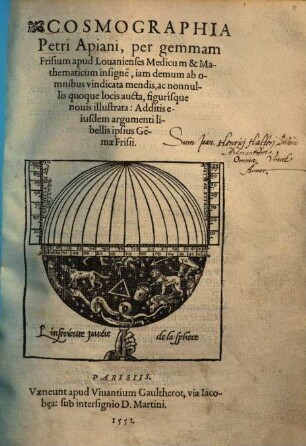 COSMOGRAPHIA
Petri Apiani, per gemmam
Frisium apud Louanienses Medicum & Ma-
thematicum insignē, iam demum ab o-
mnibus vindicata mendis, ac nonnul-
lis quoque locis aucta, figurisque
nouis illustrata: Additis e-
iusdem argumenti li-
bellis ipsius Gē-
mæ Frisii.
Sum Joan. Henrÿ
Omnia Vincit
Amor.
L'inferieure partie de la sphere
PARISIIS.
Væneunt apud Viuantium Gaultherot, via Iaco-
bęa: sub intersignio D. Martini.
1551.